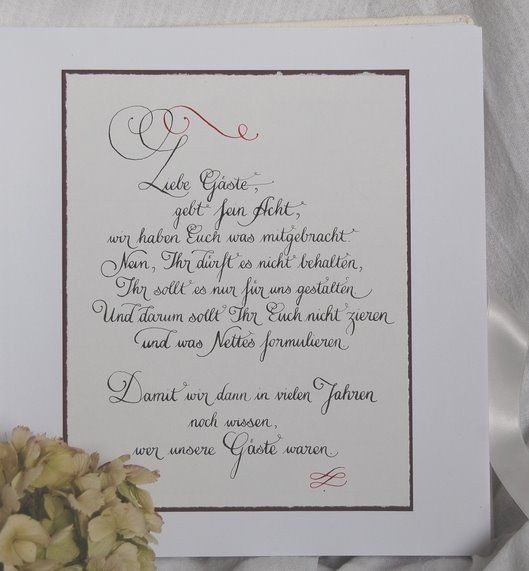 Liebe Gäste,
gebt fein Acht,
wir haben Euch was mitgebracht.
Nein, Ihr dürft es nicht behalten,
Ihr sollt es nur für uns gestalten.
Und darum sollt Ihr Euch nicht zieren
und was Nettes formulieren.
Damit wir dann in vielen Jahren
noch wissen,
wer unsere Gäste waren.